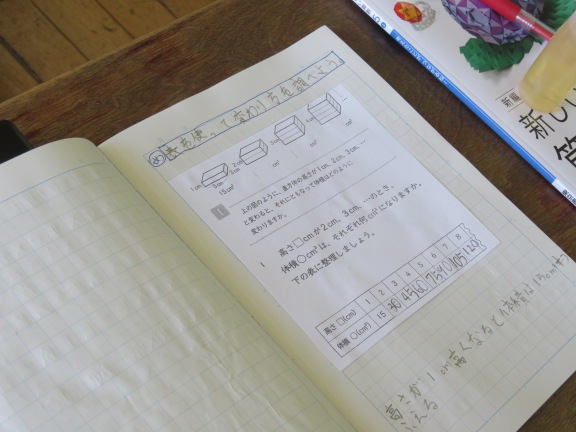 め 表を使って変わり方を調べよう。
1cm 2cm 3cm 4cm …
5cm 3cm
15cm³ cm³ cm³ cm³
1 上の図のように、直方体の高さが1cm、2cm、3cm、…
と変わると、それにともなって体積はどのように
変わりますか。
1 高さ□cmが2cm、3cm、…のとき、
体積○cm³は、それぞれ何cm³になりますか。
下の表に整理しましょう。
高さ□(cm) 1 2 3 4 5 6 7 8
体積○(cm³) 15 30 45 60 75 90 105 120
高さが1cm高くなると体積は15cm³ずつ
ふえる
新編
新しい
算